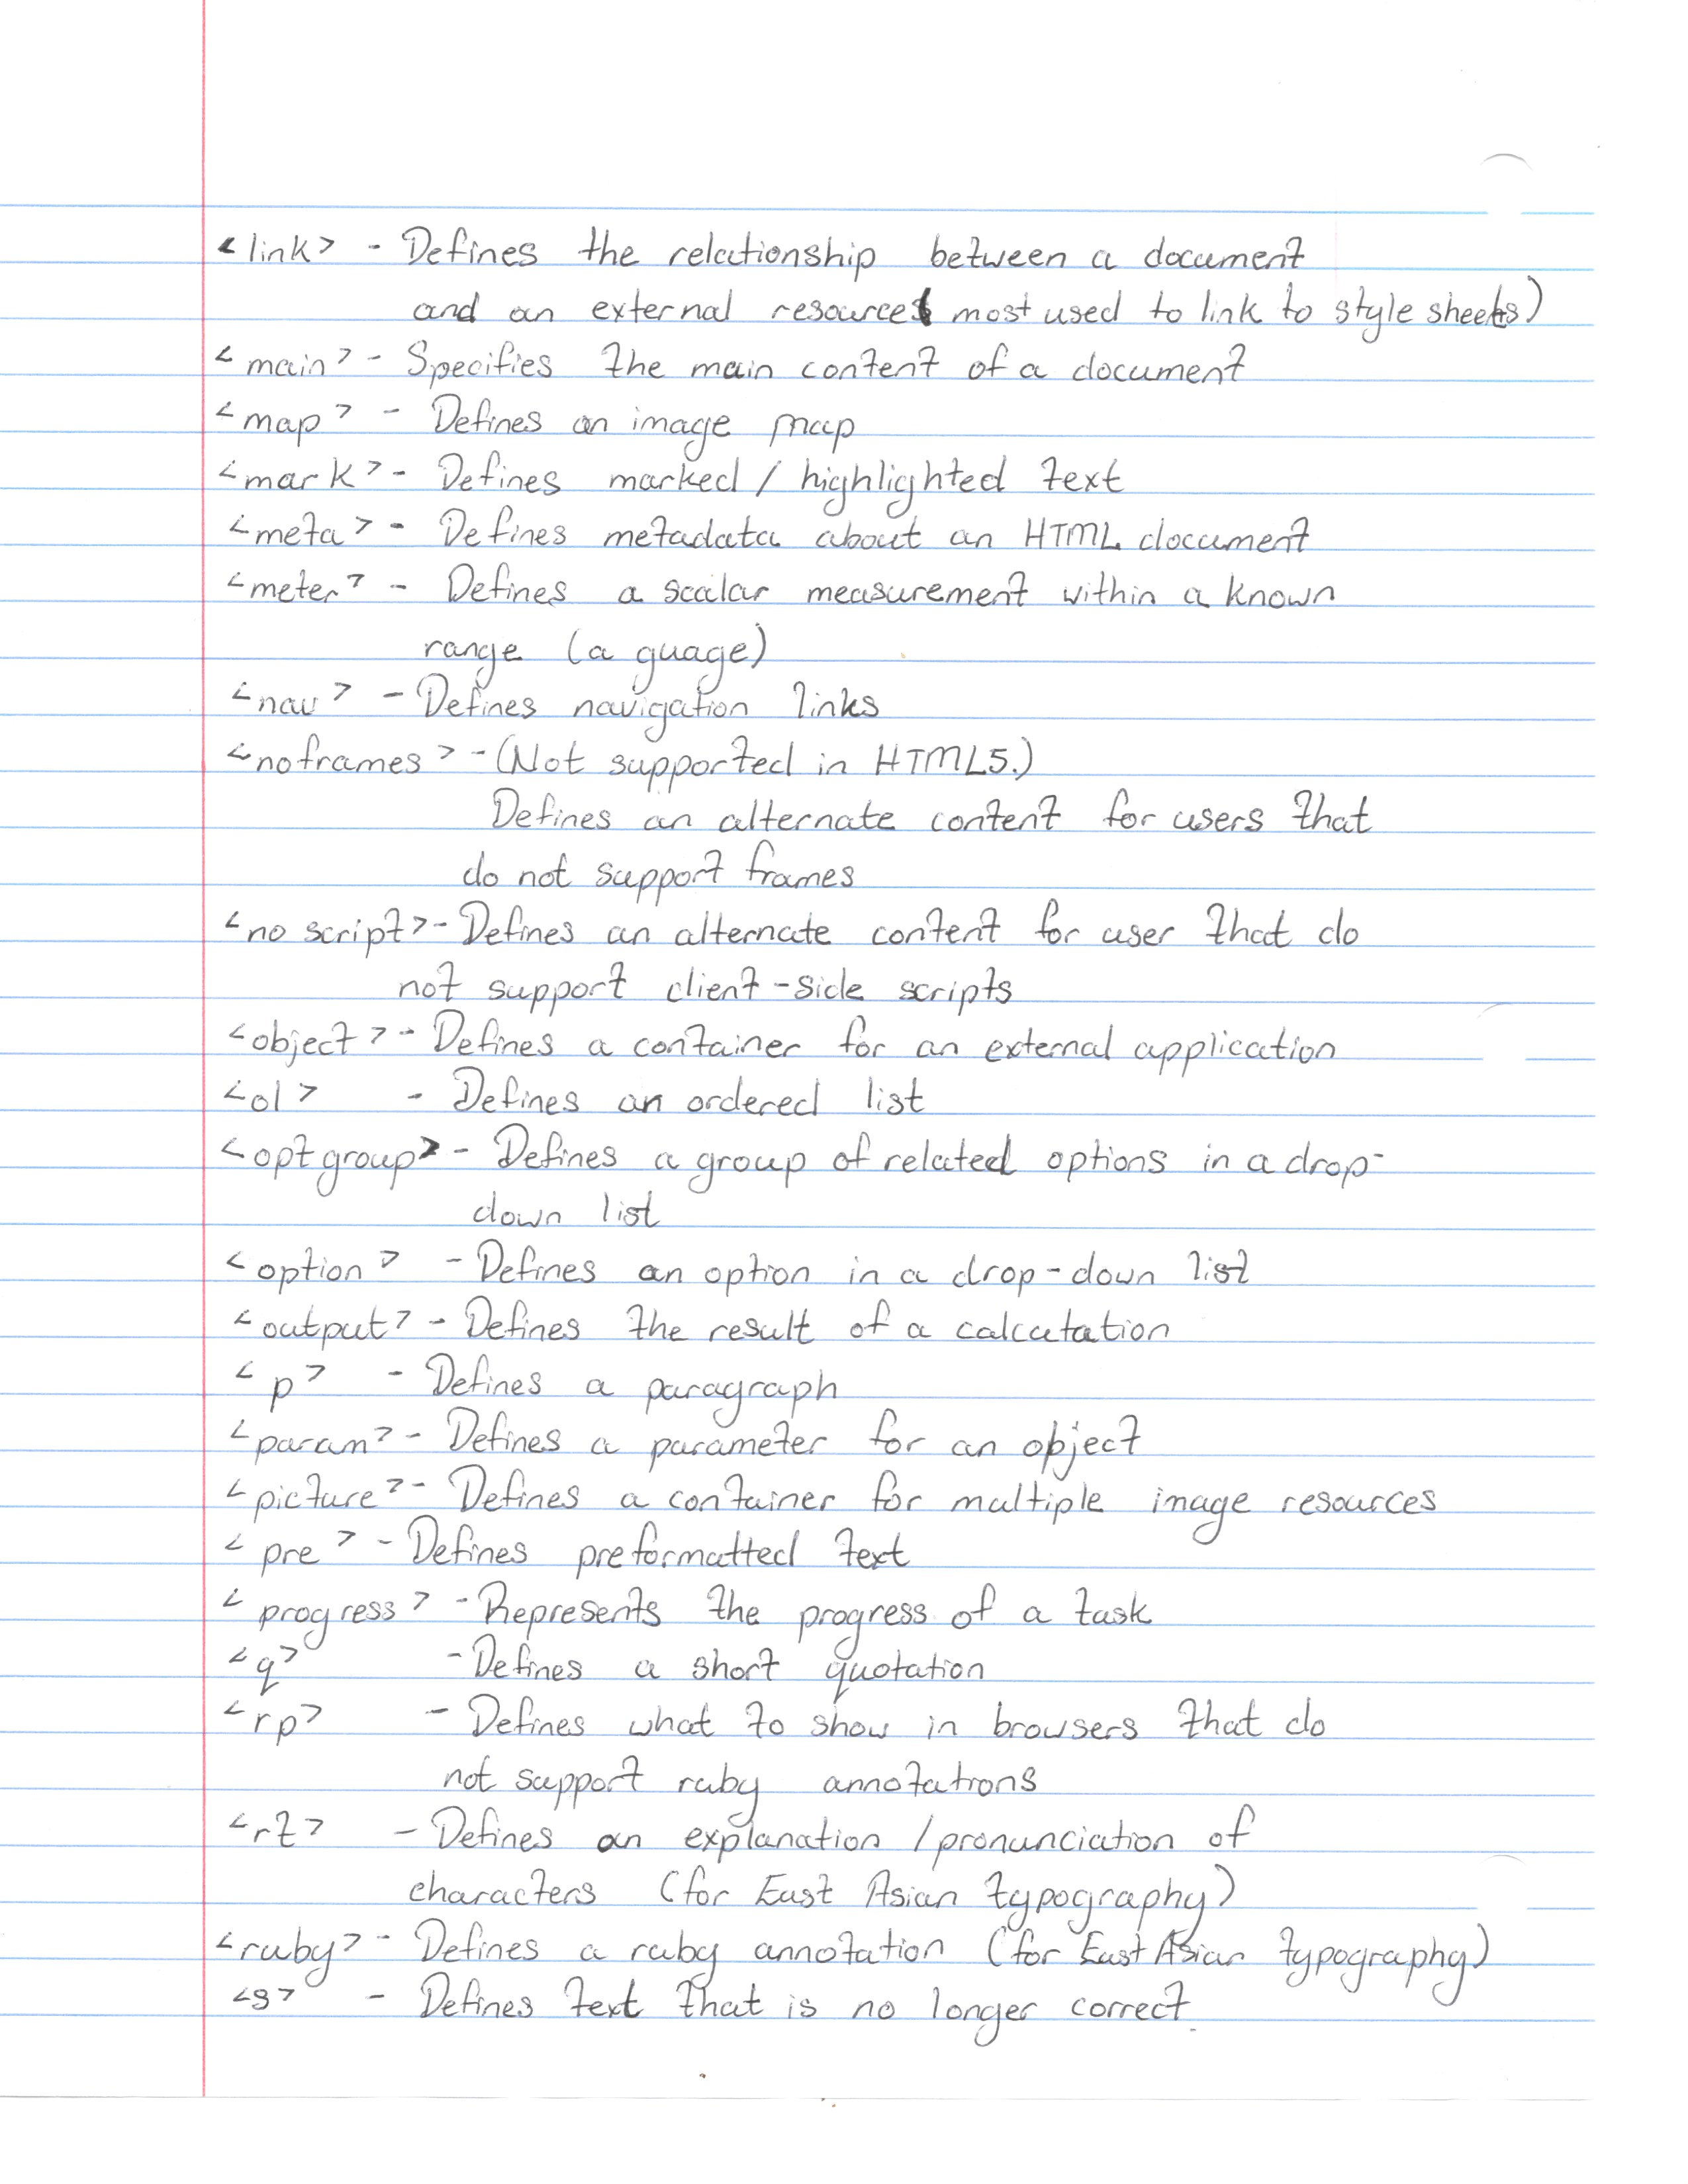 <link> - Defines the relationship between a document
and an external resource( most used to link to style sheets)
<main> - Specifies the main content of a document
<map> - Defines an image map
<mark> - Defines marked / highlighted text
<meta> - Defines metadata about an HTML document
<meter> - Defines a scalar measurement within a known
range (a guage)
<nav> - Defines navigation links
<noframes> - (Not supported in HTML5.)
Defines an alternate content for users that
do not support frames
<no script> - Defines an alternate content for user that do
not support client-side scripts
<object> - Defines a container for an external application
<ol> - Defines an ordered list
<optgroup> - Defines a group of related options in a drop-
down list
<option> - Defines an option in a drop-down list
<output> - Defines the result of a calcutation
<p> - Defines a paragraph
<param> - Defines a parameter for an object
<picture> - Defines a container for multiple image resources
<pre> - Defines preformatted text
<progress> - Represents the progress of a task
<q> - Defines a short quotation
<rp> - Defines what to show in browsers that do
not support ruby annotations
<rt> - Defines an explanation /pronunciation of
characters (for East Asian typography)
<ruby> - Defines a ruby annotation (for East Asian typography)
<s> - Defines text that is no longer correct